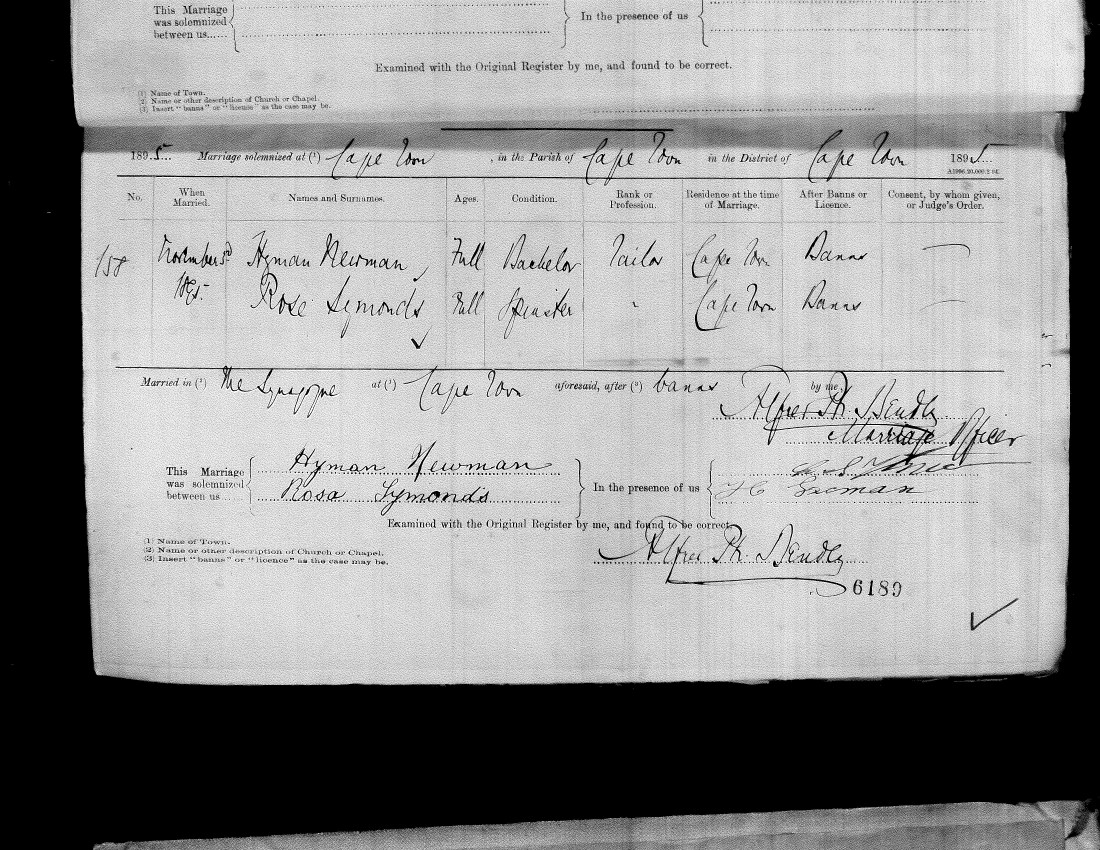 This Marriage
was solemnized
between us......
In the presence of us
Examined with the Original Register by me, and found to be correct.
(1) Name of Town.
(2) Name or other description of Church or Chapel.
(3) Insert "banns" or "licence" as the case may be.
1895... Marriage solemnized at (¹) Cape Town , in the Parish of Cape Town in the District of Cape Town 1895...
No. When Married. Names and Surnames. Ages. Condition. Rank or Profession. Residence at the time of Marriage. After Banns or Licence. Consent, by whom given, or Judge's Order.
158 November 3rd Hyman Newman, Full Bachelor Tailor Cape Town Banns —
1895. Rose Symonds Full Spinster " Cape Town Banns —
Married in (²) the Synagogue at (¹) Cape Town aforesaid, after (³) banns by me,
Alfred Ph. Bender
Marriage Officer
This Marriage
was solemnized
between us......
Hyman Newman
Rosa Symonds
In the presence of us
Examined with the Original Register by me, and found to be correct.
(1) Name of Town.
(2) Name or other description of Church or Chapel.
(3) Insert "banns" or "licence" as the case may be.
Alfred Ph. Bender
6189